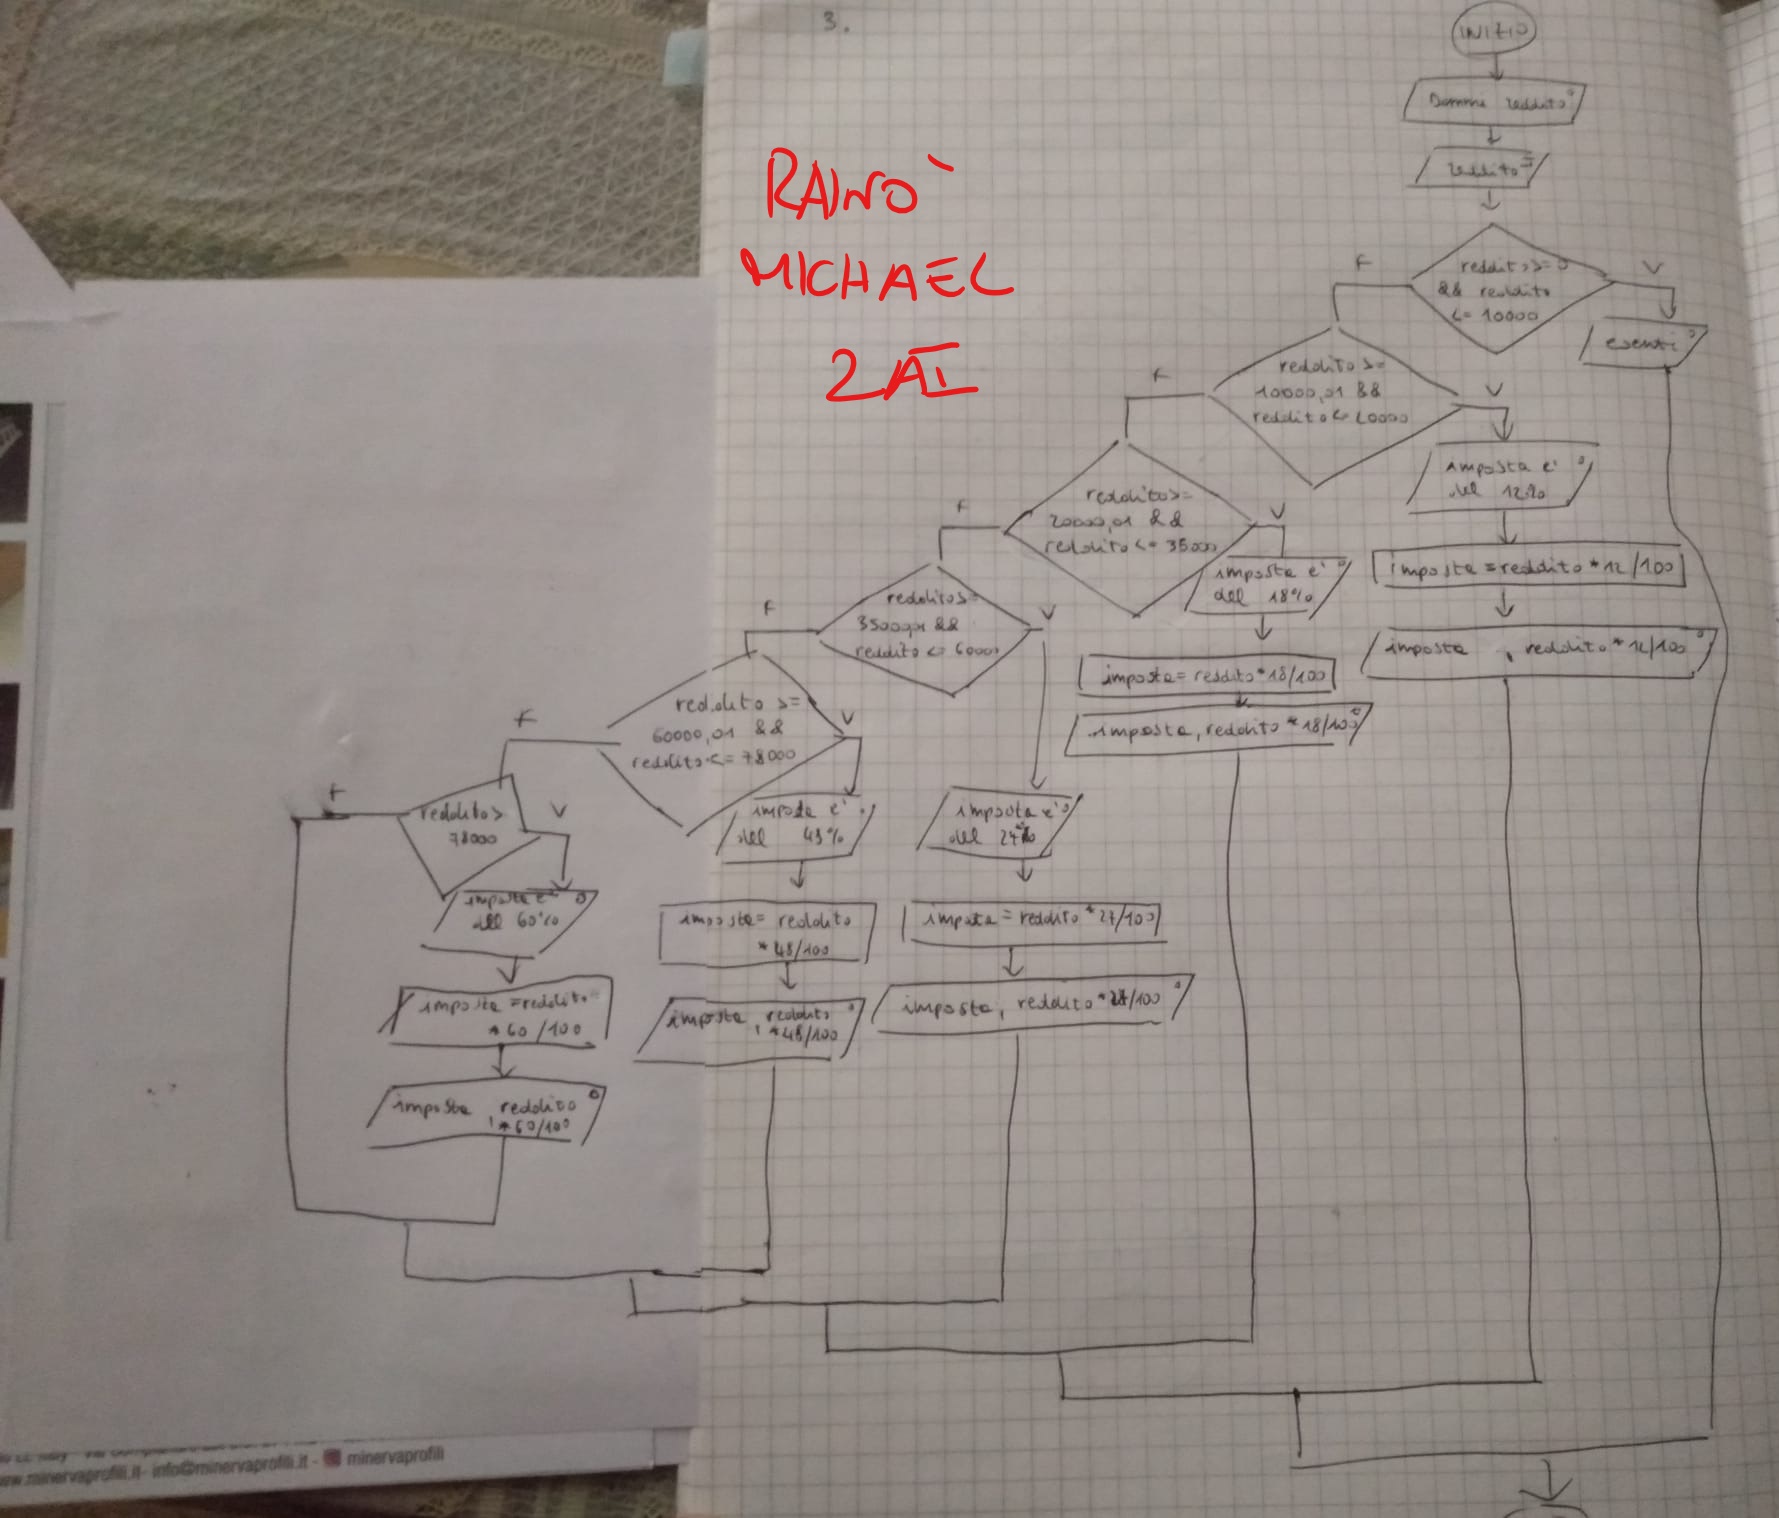 3.
INIZIO
Dammi reddito
reddito
RAINO'
MICHAEL
2AI
F
reddito>=0
&& reddito
<= 10000
V
esenti
F
reddito >=
10000,01 &&
reddito<= 20000
V
imposta e'
del 12%
imposta = reddito * 12/100
imposta , reddito * 12/100
F
reddito>=
20000,01 &&
reddito <= 35000
V
imposta e'
del 18%
imposta = reddito * 18/100
imposta, reddito * 18/100
F
reddito>=
35000,01 &&
reddito <= 60000
V
imposta e'
del 27%
imposta = reddito * 27/100
imposta, reddito * 27/100
F
reddito >=
60000,01 &&
reddito <= 78000
V
imposta e'
del
imposta = reddito
* 48/100
imposta, reddito
* 48/100
F
reddito>
78000
V
imposta e'
del 60%
imposta = reddito
* 60/100
imposta , reddito
* 60/100
www.minervaprofili.it - info@minervaprofili.it - minervaprofili